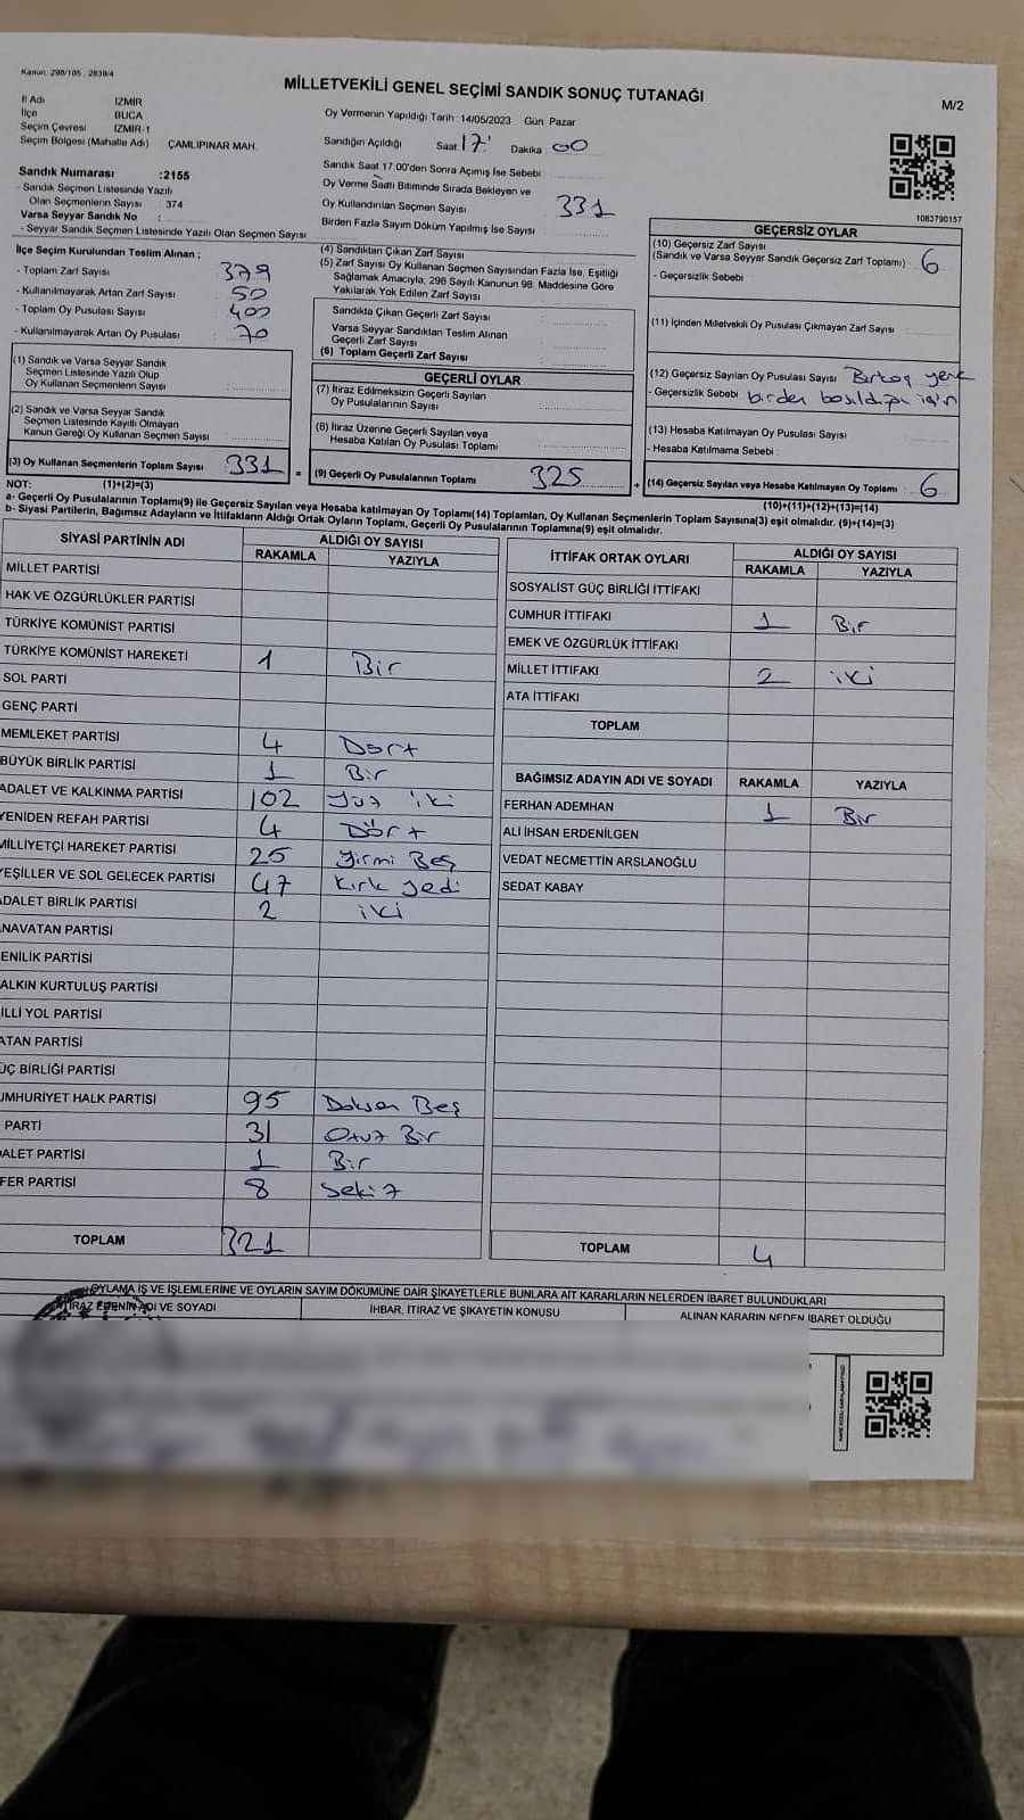 Kanun: 298/105, 2839/4
MİLLETVEKİLİ GENEL SEÇİMİ SANDIK SONUÇ TUTANAĞI
M/2
İl Adı İZMİR
İlçe BUCA
Seçim Çevresi İZMİR-1
Seçim Bölgesi (Mahalle Adı) ÇAMLIPINAR MAH.
Oy Vermenin Yapıldığı Tarih :14/05/2023 Gün: Pazar
Sandığın Açıldığı Saat 17 Dakika 00
Sandık Saat 17:00'den Sonra Açımış İse Sebebi
Oy Verme Saati Bitiminde Sırada Bekleyen ve
Oy Kullandırılan Seçmen Sayısı 331
Birden Fazla Sayım Döküm Yapılmış İse Sayısı
Sandık Numarası :2155
- Sandık Seçmen Listesinde Yazılı
Olan Seçmenlerin Sayısı 374
Varsa Seyyar Sandık No :
- Seyyar Sandık Seçmen Listesinde Yazılı Olan Seçmen Sayısı
1083790157
İlçe Seçim Kurulundan Teslim Alınan ;
- Toplam Zarf Sayısı 379
- Kullanılmayarak Artan Zarf Sayısı 50
- Toplam Oy Pusulası Sayısı 400
- Kullanılmayarak Artan Oy Pusulası 70
(1) Sandık ve Varsa Seyyar Sandık
Seçmen Listesinde Yazılı Olup
Oy Kullanan Seçmenlerin Sayısı
(2) Sandık ve Varsa Seyyar Sandık
Seçmen Listesinde Kayıtlı Olmayan
Kanun Gereği Oy Kullanan Seçmen Sayısı
(3) Oy Kullanan Seçmenlerin Toplam Sayısı 331
(4) Sandıktan Çıkan Zarf Sayısı
(5) Zarf Sayısı Oy Kullanan Seçmen Sayısından Fazla İse, Eşitliği
Sağlamak Amacıyla, 298 Sayılı Kanunun 98. Maddesine Göre
Yakılarak Yok Edilen Zarf Sayısı
Sandıkta Çıkan Geçerli Zarf Sayısı
Varsa Seyyar Sandıktan Teslim Alınan
Geçerli Zarf Sayısı
(6) Toplam Geçerli Zarf Sayısı
GEÇERLİ OYLAR
(7) İtiraz Edilmeksizin Geçerli Sayılan
Oy Pusulalarının Sayısı
(8) İtiraz Üzerine Geçerli Sayılan veya
Hesaba Katılan Oy Pusulası Toplamı
= (9) Geçerli Oy Pusulalarının Toplamı 325
GEÇERSİZ OYLAR
(10) Geçersiz Zarf Sayısı
(Sandık ve Varsa Seyyar Sandık Geçersiz Zarf Toplamı) 6
- Geçersizlik Sebebi
(11) İçinden Milletvekili Oy Pusulası Çıkmayan Zarf Sayısı
(12) Geçersiz Sayılan Oy Pusulası Sayısı Birkaç yere
- Geçersizlik Sebebi birden basıldığı için
(13) Hesaba Katılmayan Oy Pusulası Sayısı
- Hesaba Katılmama Sebebi
+ (14) Geçersiz Sayılan veya Hesaba Katılmayan Oy Toplamı 6
NOT: (1)+(2)=(3) (10)+(11)+(12)+(13)=(14)
a- Geçerli Oy Pusulalarının Toplamı(9) ile Geçersiz Sayılan veya Hesaba katılmayan Oy Pusulası Toplamı(14) Toplamları, Oy Kullanan Seçmenlerin Toplam Sayısına(3) eşit olmalıdır. (9)+(14)=(3)
b- Siyasi Partilerin, Bağımsız Adayların ve İttifakların Aldığı Ortak Oyların Toplamı, Geçerli Oy Pusulalarının Toplamına(9) eşit olmalıdır.
SİYASİ PARTİNİN ADI ALDIĞI OY SAYISI
RAKAMLA YAZIYLA
MİLLET PARTİSİ
HAK VE ÖZGÜRLÜKLER PARTİSİ
TÜRKİYE KOMÜNİST PARTİSİ
TÜRKİYE KOMÜNİST HAREKETİ 1 Bir
SOL PARTİ
GENÇ PARTİ
MEMLEKET PARTİSİ 4 Dört
BÜYÜK BİRLİK PARTİSİ 1 Bir
ADALET VE KALKINMA PARTİSİ 102 Yüz iki
YENİDEN REFAH PARTİSİ 4 Dört
MİLLİYETÇİ HAREKET PARTİSİ 25 Yirmi Beş
YEŞİLLER VE SOL GELECEK PARTİSİ 47 Kırk yedi
ADALET BİRLİK PARTİSİ 2 iki
NAVATAN PARTİSİ
ENİLİK PARTİSİ
ALKIN KURTULUŞ PARTİSİ
İLLİ YOL PARTİSİ
ATAN PARTİSİ
ÜÇ BİRLİĞİ PARTİSİ
UMHURİYET HALK PARTİSİ 95 Doksan Beş
PARTİ 31 Otuz Bir
ALET PARTİSİ 1 Bir
FER PARTİSİ 8 Sekiz
TOPLAM 321
İTTİFAK ORTAK OYLARI ALDIĞI OY SAYISI
RAKAMLA YAZIYLA
SOSYALİST GÜÇ BİRLİĞİ İTTİFAKI
CUMHUR İTTİFAKI 1 Bir
EMEK VE ÖZGÜRLÜK İTTİFAKI
MİLLET İTTİFAKI 2 iki
ATA İTTİFAKI
TOPLAM
BAĞIMSIZ ADAYIN ADI VE SOYADI RAKAMLA YAZIYLA
FERHAN ADEMHAN 1 Bir
ALİ İHSAN ERDENİLGEN
VEDAT NECMETTİN ARSLANOĞLU
SEDAT KABAY
TOPLAM 4
OYLAMA İŞ VE İŞLEMLERİNE VE OYLARIN SAYIM DÖKÜMÜNE DAİR ŞİKAYETLERLE BUNLARA AİT KARARLARIN NELERDEN İBARET BULUNDUKLARI
İTİRAZ EDENİN ADI VE SOYADI İHBAR, İTİRAZ VE ŞİKAYETİN KONUSU ALINAN KARARIN NEDEN İBARET OLDUĞU